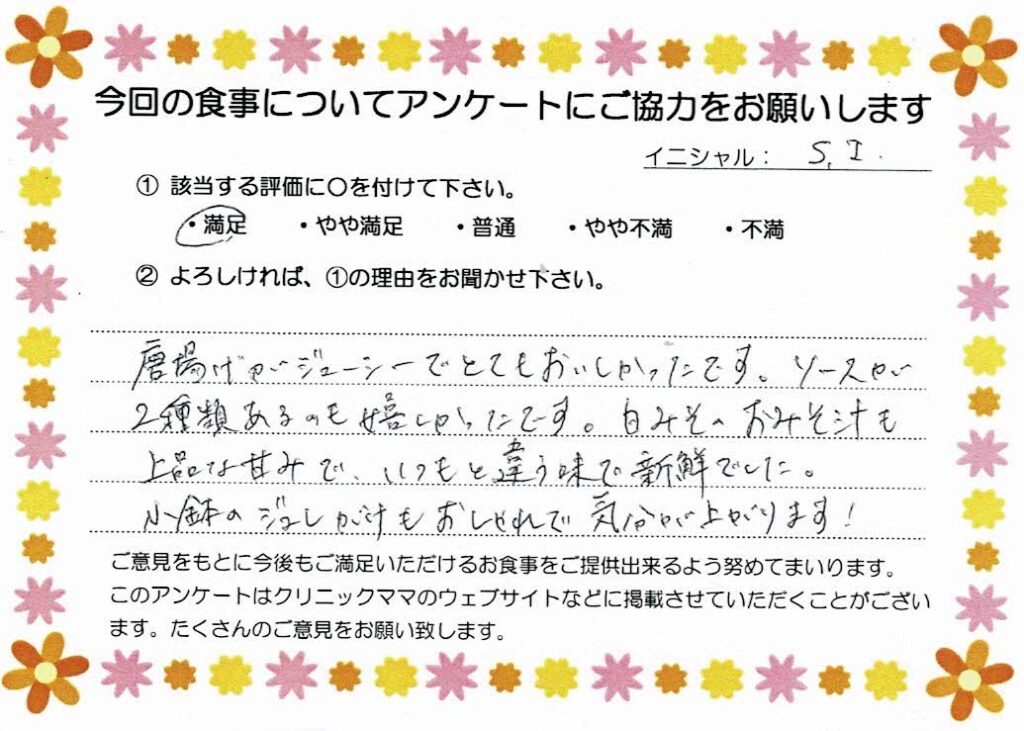 今回の食事についてアンケートにご協力をお願いします
イニシャル： S.I.
① 該当する評価に〇を付けて下さい。
・満足 ・やや満足 ・普通 ・やや不満 ・不満
② よろしければ、①の理由をお聞かせ下さい。
唐揚げがジューシーでとてもおいしかったです。ソースが
2種類あるのも嬉しかったです。白みそのおみそ汁も
上品な甘みで、いつもと違う味で新鮮でした。
小鉢のジュレがけもおしゃれで気分が上がります！
ご意見をもとに今後もご満足いただけるお食事をご提供出来るよう努めてまいります。
このアンケートはクリニックママのウェブサイトなどに掲載させていただくことがござい
ます。たくさんのご意見をお願い致します。